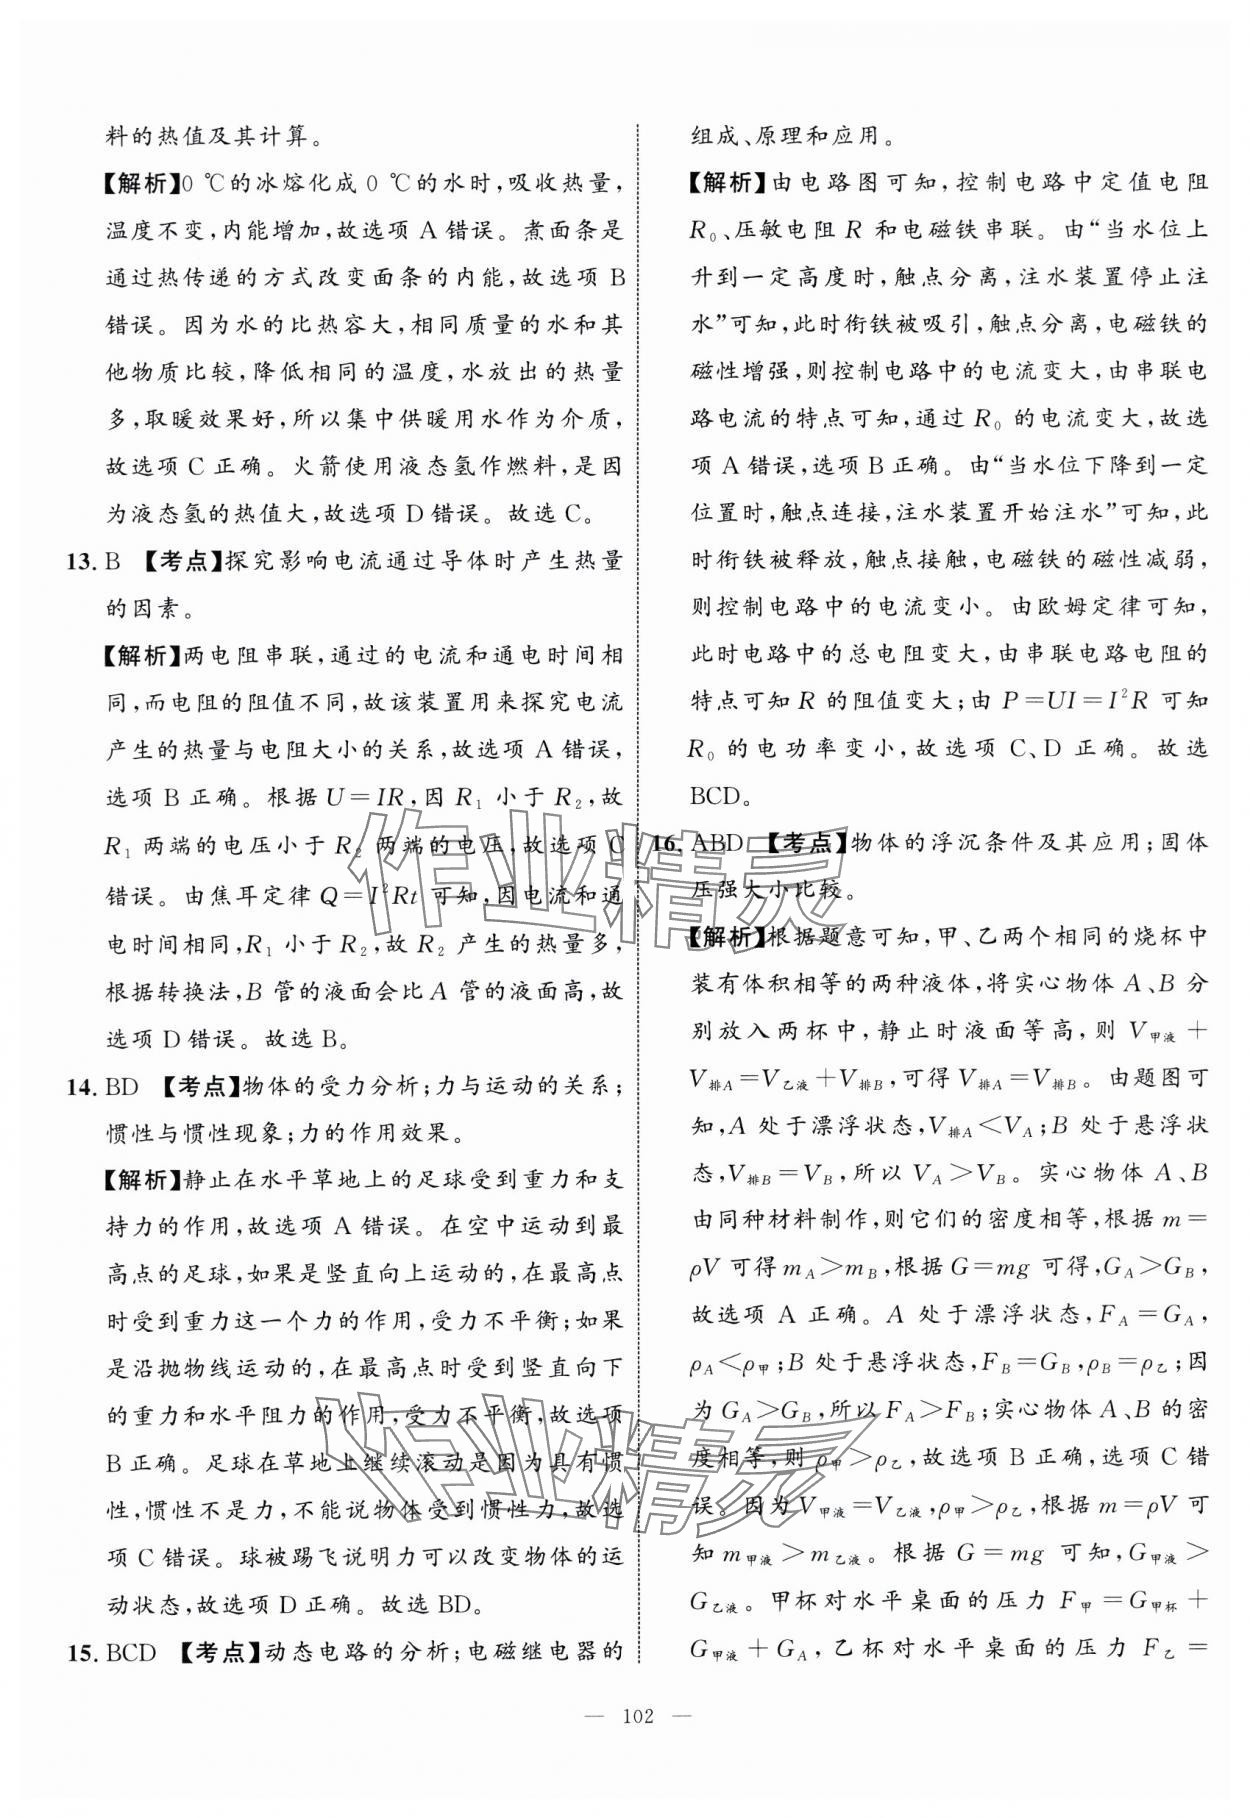 料的热值及其计算。
【解析】0 ℃的冰熔化成 0 ℃的水时,吸收热量,
温度不变,内能增加,故选项 A 错误。煮面条是
通过热传递的方式改变面条的内能,故选项 B
错误。因为水的比热容大,相同质量的水和其
他物质比较,降低相同的温度,水放出的热量
多,取暖效果好,所以集中供暖用水作为介质,
故选项 C 正确。火箭使用液态氢作燃料,是因
为液态氢的热值大,故选项 D 错误。故选 C。
13. B 【考点】探究影响电流通过导体时产生热量
的因素。
【解析】两电阻串联,通过的电流和通电时间相
同,而电阻的阻值不同,故该装置用来探究电流
产生的热量与电阻大小的关系,故选项 A 错误,
选项 B 正确。根据 U=IR,因 R₁ 小于 R₂,故
R₁ 两端的电压小于 R₂ 两端的电压,故选项 C
错误。由焦耳定律 Q=I²Rt 可知,因电流和通
电时间相同,R₁ 小于 R₂,故 R₂ 产生的热量多,
根据转换法,B 管的液面会比 A 管的液面高,故
选项 D 错误。故选 B。
14. BD 【考点】物体的受力分析;力与运动的关系;
惯性与惯性现象;力的作用效果。
【解析】静止在水平草地上的足球受到重力和支
持力的作用,故选项 A 错误。在空中运动到最
高点的足球,如果是竖直向上运动的,在最高点
时受到重力这一个力的作用,受力不平衡;如果
是沿抛物线运动的,在最高点时受到竖直向下
的重力和水平阻力的作用,受力不平衡,故选项
B 正确。足球在草地上继续滚动是因为具有惯
性,惯性不是力,不能说物体受到惯性力,故选
项 C 错误。球被踢飞说明力可以改变物体的运
动状态,故选项 D 正确。故选 BD。
15. BCD 【考点】动态电路的分析;电磁继电器的
组成、原理和应用。
【解析】由电路图可知,控制电路中定值电阻
R₀、压敏电阻 R 和电磁铁串联。由“当水位上
升到一定高度时,触点分离,注水装置停止注
水”可知,此时衔铁被吸引,触点分离,电磁铁的
磁性增强,则控制电路中的电流变大,由串联电
路电流的特点可知,通过 R₀ 的电流变大,故选
项 A 错误,选项 B 正确。由“当水位下降到一定
位置时,触点连接,注水装置开始注水”可知,此
时衔铁被释放,触点接触,电磁铁的磁性减弱,
则控制电路中的电流变小。由欧姆定律可知,
此时电路中的总电阻变大,由串联电路电阻的
特点可知 R 的阻值变大;由 P=UI=I²R 可知
R₀ 的电功率变小,故选项 C、D 正确。故选
BCD。
16. ABD 【考点】物体的浮沉条件及其应用;固体
压强大小比较。
【解析】根据题意可知,甲、乙两个相同的烧杯中
装有体积相等的两种液体,将实心物体 A、B 分
别放入两杯中,静止时液面等高,则 V甲液+
V排A=V乙液+V排B,可得 V排A=V排B。由题图可
知,A 处于漂浮状态,V排A<VA;B 处于悬浮状
态,V排B=VB,所以 VA>VB。实心物体 A、B
由同种材料制作,则它们的密度相等,根据 m=
ρV 可得 mA>mB,根据 G=mg 可得,GA>GB,
故选项 A 正确。A 处于漂浮状态,FA=GA,
ρA<ρ甲;B 处于悬浮状态,FB=GB,ρB=ρ乙;因
为 GA>GB,所以 FA>FB;实心物体 A、B 的密
度相等,则 ρ甲>ρ乙,故选项 B 正确,选项 C 错
误。因为 V甲液=V乙液,ρ甲>ρ乙,根据 m=ρV 可
知 m甲液>m乙液。根据 G=mg 可知,G甲液>
G乙液。甲杯对水平桌面的压力 F甲=G甲杯+
G甲液+GA,乙杯对水平桌面的压力 F乙=
— 102 —
作业精灵
作业精灵